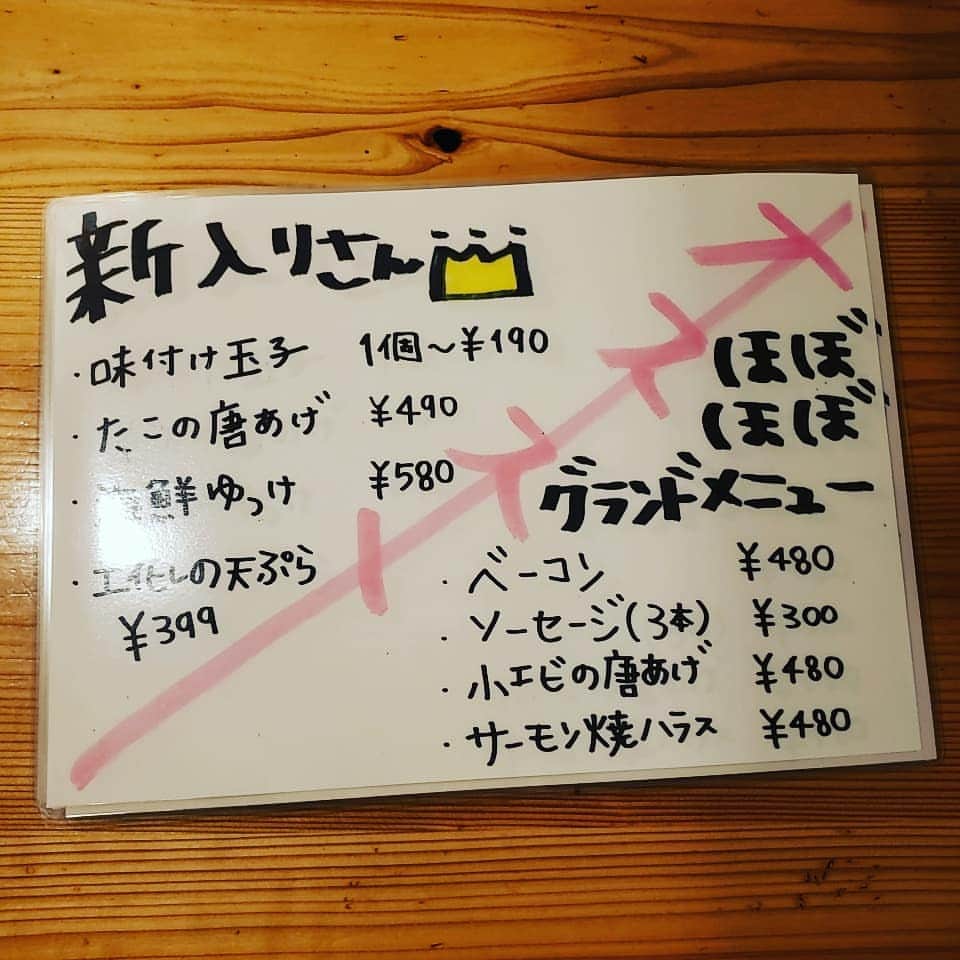 新入りさん
・味付け玉子 1個〜¥190
・たこの唐あげ ¥490
・海鮮ゆっけ ¥580
・エイヒレの天ぷら
¥399
ほぼ
ほぼ
グランドメニュー
・ベーコン ¥480
・ソーセージ(3本) ¥300
・小エビの唐あげ ¥480
・サーモン焼ハラス ¥480